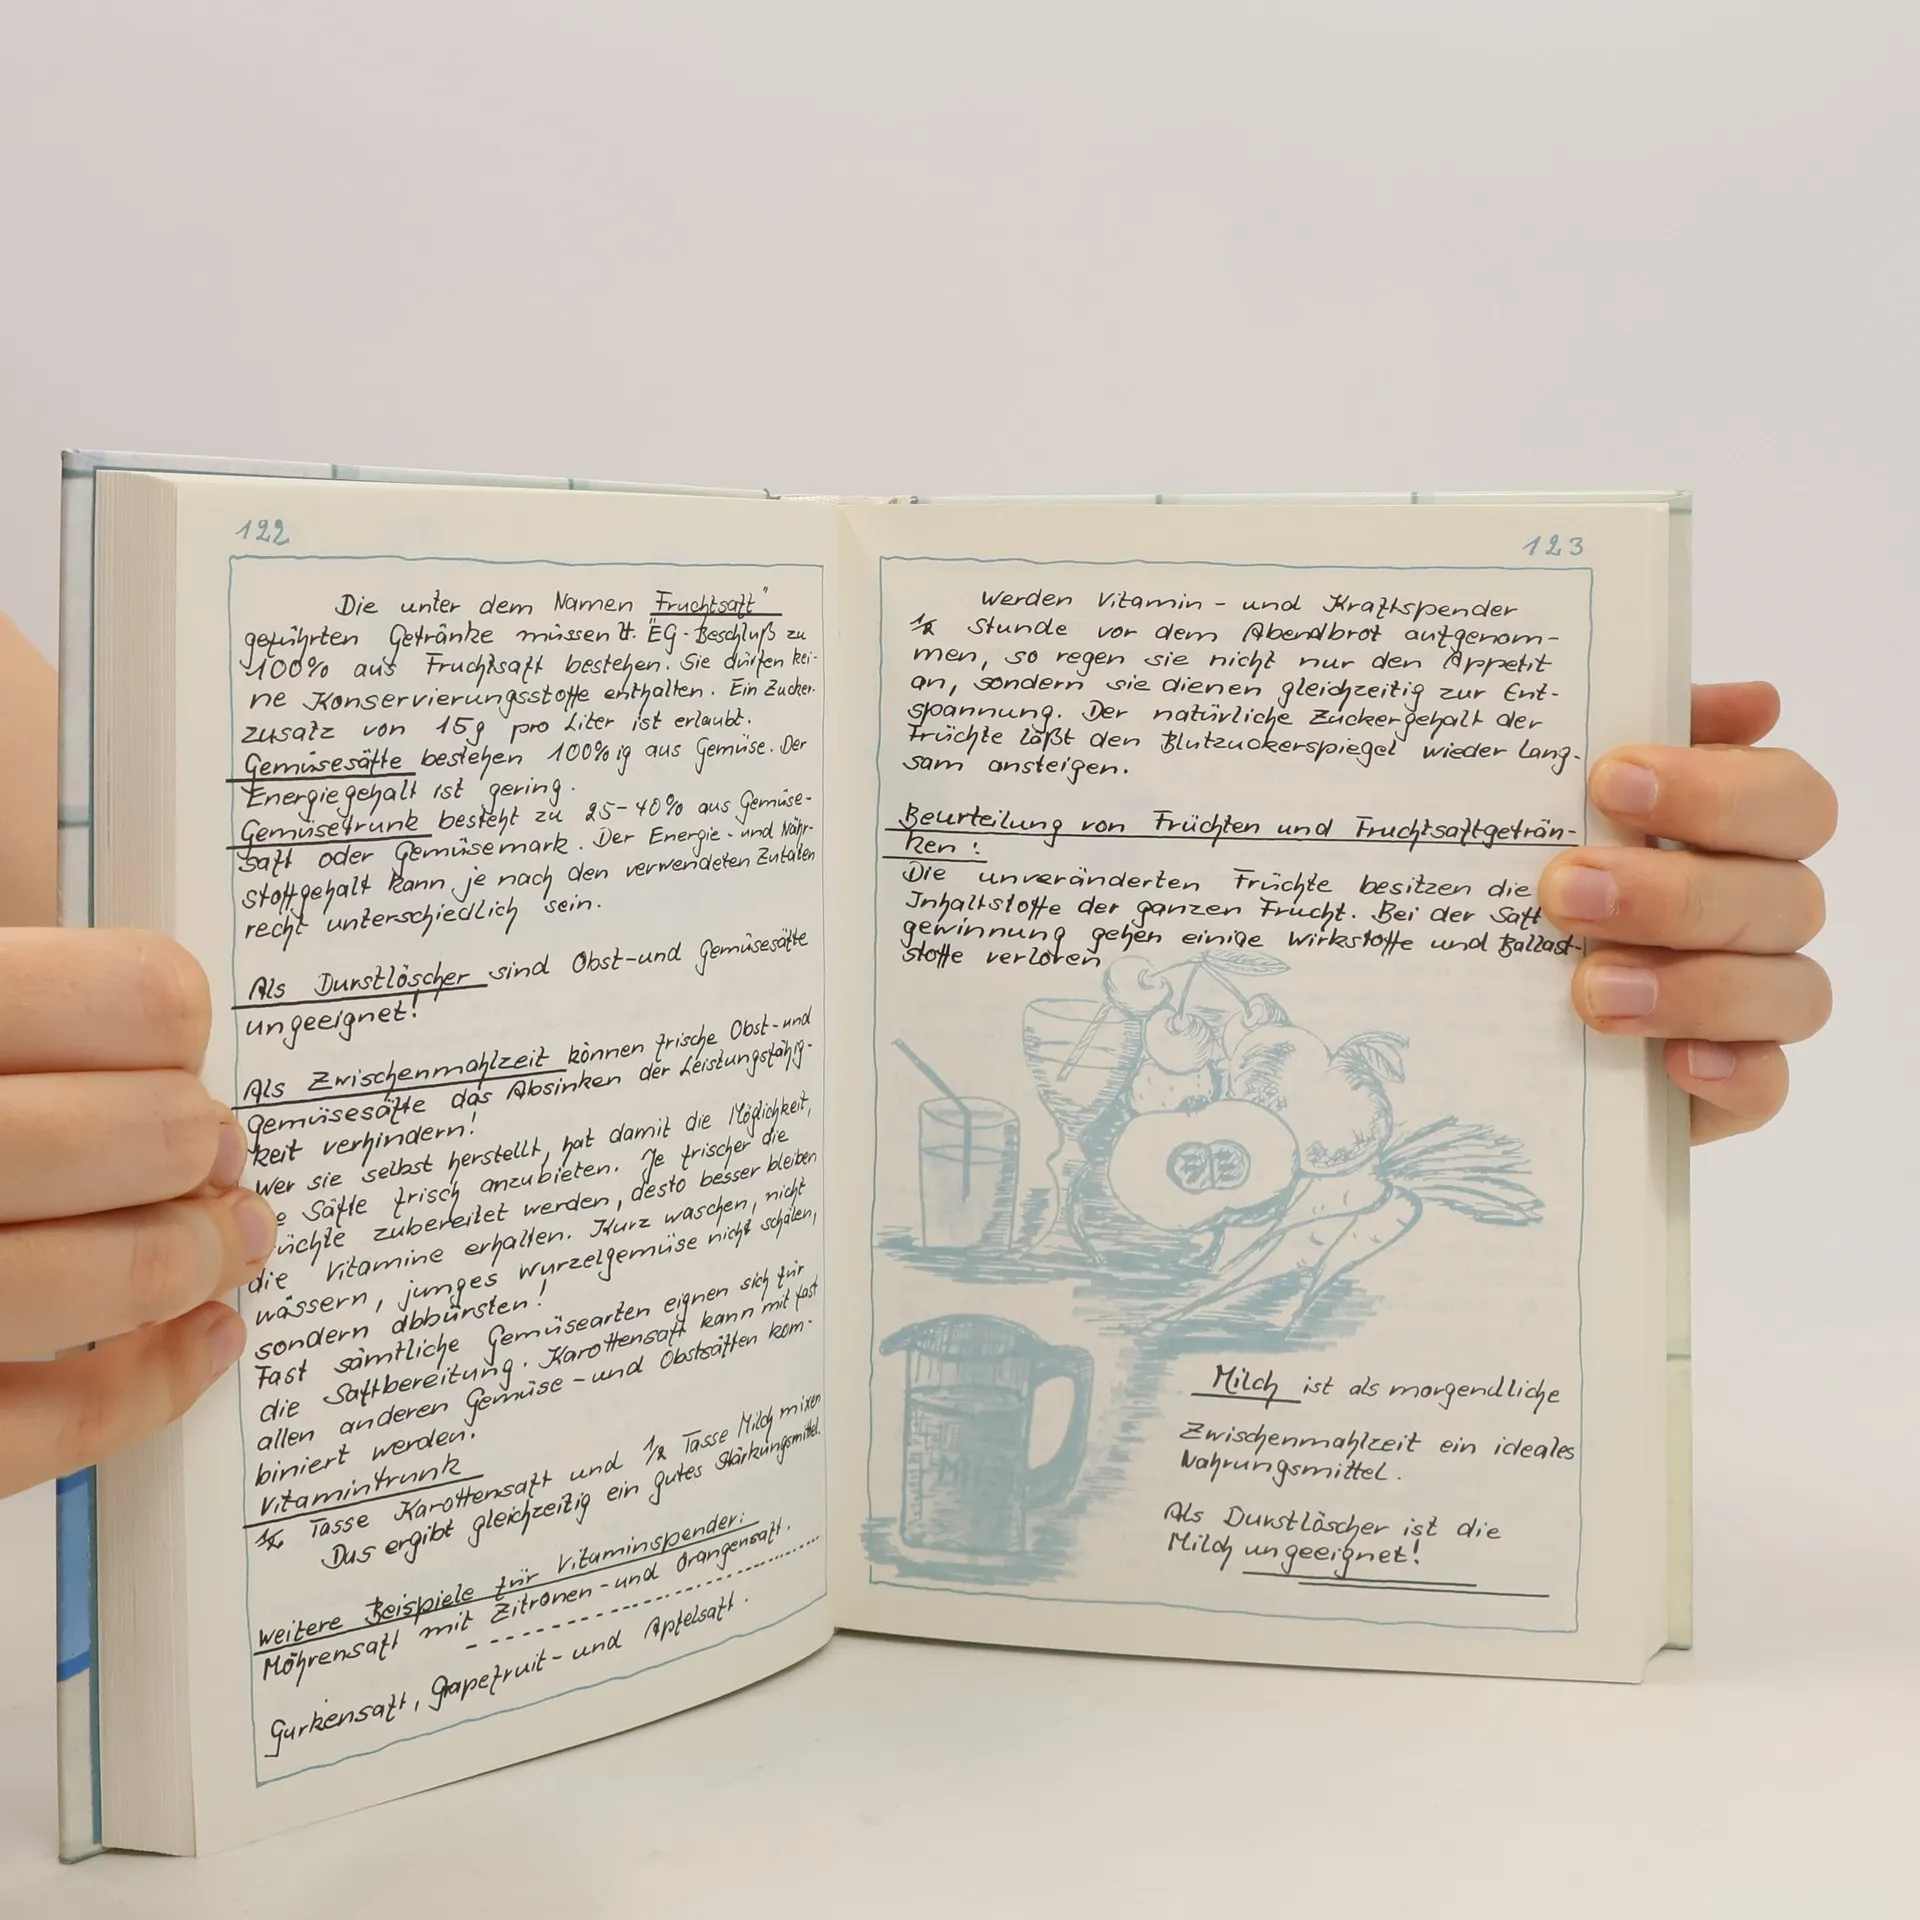 122
Die unter dem Namen „Fruchtsaft"
geführten Getränke müssen lt. EG-Beschluß zu
100% aus Fruchtsaft bestehen. Sie dürfen kei-
ne Konservierungsstoffe enthalten. Ein Zucker-
zusatz von 15g pro Liter ist erlaubt.
Gemüsesäfte bestehen 100%ig aus Gemüse. Der
Energiegehalt ist gering.
Gemüsetrunk besteht zu 25-40% aus Gemüse-
saft oder Gemüsemark. Der Energie- und Nähr-
stoffgehalt kann je nach den verwendeten Zutaten
recht unterschiedlich sein.
Als Durstlöscher sind Obst- und Gemüsesäfte
ungeeignet!
Als Zwischenmahlzeit können frische Obst- und
Gemüsesäfte das Absinken der Leistungsfähig-
keit verhindern!
Wer sie selbst herstellt, hat damit die Möglichkeit,
e Säfte frisch anzubieten. Je frischer die
üchte zubereitet werden, desto besser bleiben
die Vitamine erhalten. Kurz waschen, nicht
wässern, junges Wurzelgemüse nicht schälen,
sondern abbürsten!
Fast sämtliche Gemüsearten eignen sich für
die Saftbereitung. Karottensaft kann mit fast
allen anderen Gemüse- und Obstsäften kom-
biniert werden.
Vitamintrunk
1/2 Tasse Karottensaft und 1/2 Tasse Milch mixen
Das ergibt gleichzeitig ein gutes Stärkungsmittel.
Weitere Beispiele für Vitaminspender:
Möhrensaft mit Zitronen- und Orangensaft.
Gurkensaft, Grapefruit- und Apfelsaft.
123
Werden Vitamin- und Kraftspender
1/2 Stunde vor dem Abendbrot aufgenom-
men, so regen sie nicht nur den Appetit
an, sondern sie dienen gleichzeitig zur Ent-
spannung. Der natürliche Zuckergehalt der
Früchte läßt den Blutzuckerspiegel wieder lang-
sam ansteigen.
Beurteilung von Früchten und Fruchtsaftgeträn-
ken:
Die unveränderten Früchte besitzen die
Inhaltstoffe der ganzen Frucht. Bei der Saft
gewinnung gehen einige Wirkstoffe und Ballast-
stoffe verloren
Milch ist als morgendliche
Zwischenmahlzeit ein ideales
Nahrungsmittel.
Als Durstlöscher ist die
Milch ungeeignet!